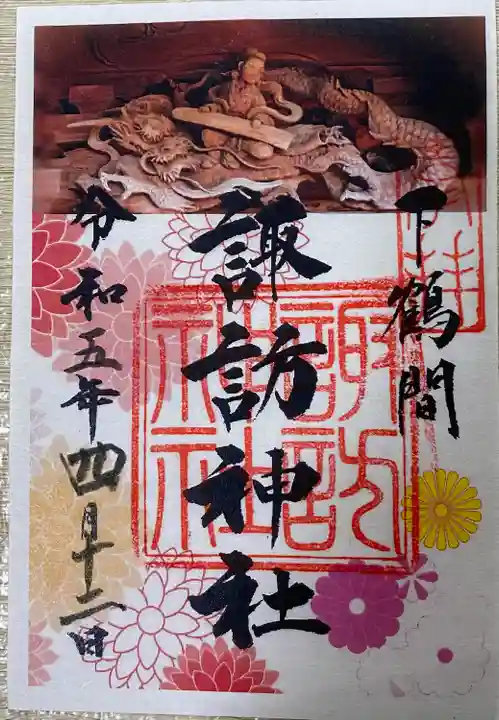 下鶴間
諏訪神社
令和五年四月十二日
諏訪神社